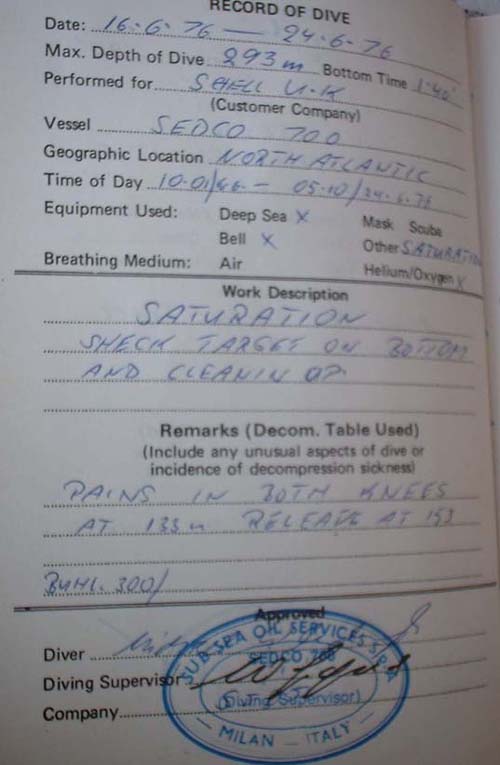 RECORD OF DIVE
Date: 16-6-76 — 24-6-76
Max. Depth of Dive 293m Bottom Time 1·40'
Performed for SHELL U.K
(Customer Company)
Vessel SEDCO 700
Geographic Location NORTH ATLANTIC
Time of Day 10.01/ - 05.10/24-6-76
Equipment Used: Deep Sea X Mask Scuba
Bell X Other SATURATION
Breathing Medium: Air Helium/Oxygen X
Work Description
SATURATION
SHECK TARGET ON BOTTOM
AND CLEANIN UP.
Remarks (Decom. Table Used)
(Include any unusual aspects of dive or
incidence of decompression sickness)
PAINS IN BOTH KNEES
AT 133m RELEAVE AT 153
BUHL. 300/
Approved
Diver
Diving Supervisor
Company
SUB SEA OIL SERVICES S.P.A.
SEDCO
(Diving Supervisor)
— MILAN — ITALY —